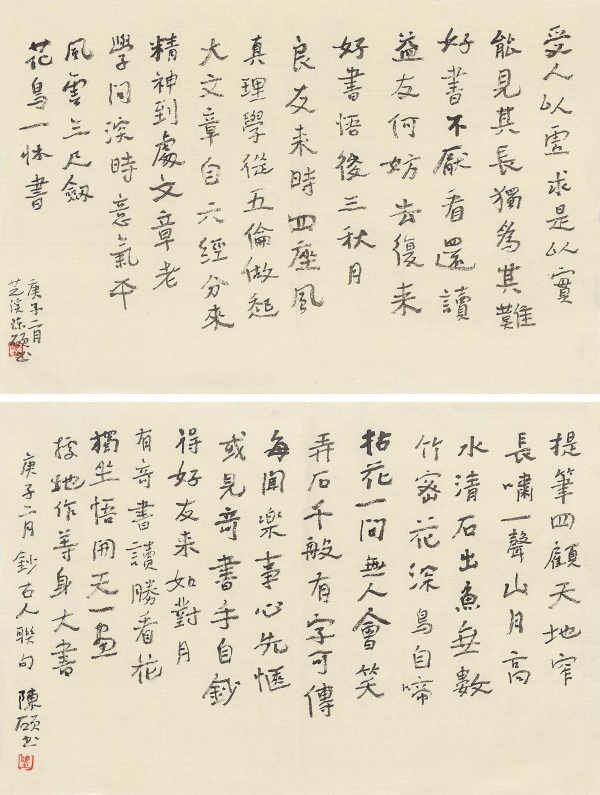 受人以虛求是以實
能見其長獨為其難
好書不厭看還讀
益友何妨去復来
好書悟後三秋月
良友来時四座風
真理學從五倫做起
大文章自六經分来
精神到處文章老
學問深時意氣平
風雲三尺劔
花鳥一牀書
庚子二月
芝溪陈碩书
提筆四顧天地窄
長嘯一聲山月高
水清石出魚無數
竹密花深鳥自啼
拈花一問無人會笑
弄石千般有字可傳
每聞樂事心先愜
或見奇書手自鈔
得好友来如對月
有奇書讀勝看花
獨坐悟開天一畫
撐地作等身大書
庚子二月鈔古人聯句
陳碩书